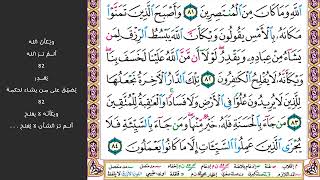 ٱللَّهِ وَمَا كَانَ مِنَ ٱلْمُنتَصِرِينَ ٨١ وَأَصْبَحَ ٱلَّذِينَ تَمَنَّوْا۟
مَكَانَهُۥ بِٱلْأَمْسِ يَقُولُونَ وَيْكَأَنَّ ٱللَّهَ يَبْسُطُ ٱلرِّزْقَ لِمَن
يَشَآءُ مِنْ عِبَادِهِۦ وَيَقْدِرُ لَوْلَآ أَن مَّنَّ ٱللَّهُ عَلَيْنَا لَخَسَفَ بِنَا
وَيْكَأَنَّهُۥ لَا يُفْلِحُ ٱلْكَٰفِرُونَ ٨٢ تِلْكَ ٱلدَّارُ ٱلْءَاخِرَةُ نَجْعَلُهَا
لِلَّذِينَ لَا يُرِيدُونَ عُلُوًّا فِى ٱلْأَرْضِ وَلَا فَسَادًا وَٱلْعَٰقِبَةُ لِلْمُتَّقِينَ
٨٣ مَن جَآءَ بِٱلْحَسَنَةِ فَلَهُۥ خَيْرٌ مِّنْهَا وَمَن جَآءَ بِٱلسَّيِّئَةِ
فَلَا يُجْزَى ٱلَّذِينَ عَمِلُوا۟ ٱلسَّيِّـَٔاتِ إِلَّا مَا كَانُوا۟ يَعْمَلُونَ ٨٤
ويكأن الله
ألم تر الله
82
يقدر
يضيق على من يشاء لحكمة
82
ويكأنه لا يفلح
ألم تر الشأن لا يفلح ...